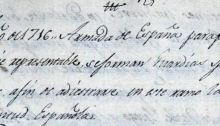 de 1716. Armada de España para
representable, se forman Guardias
afin de adiestrarse en ese ramo la
Española